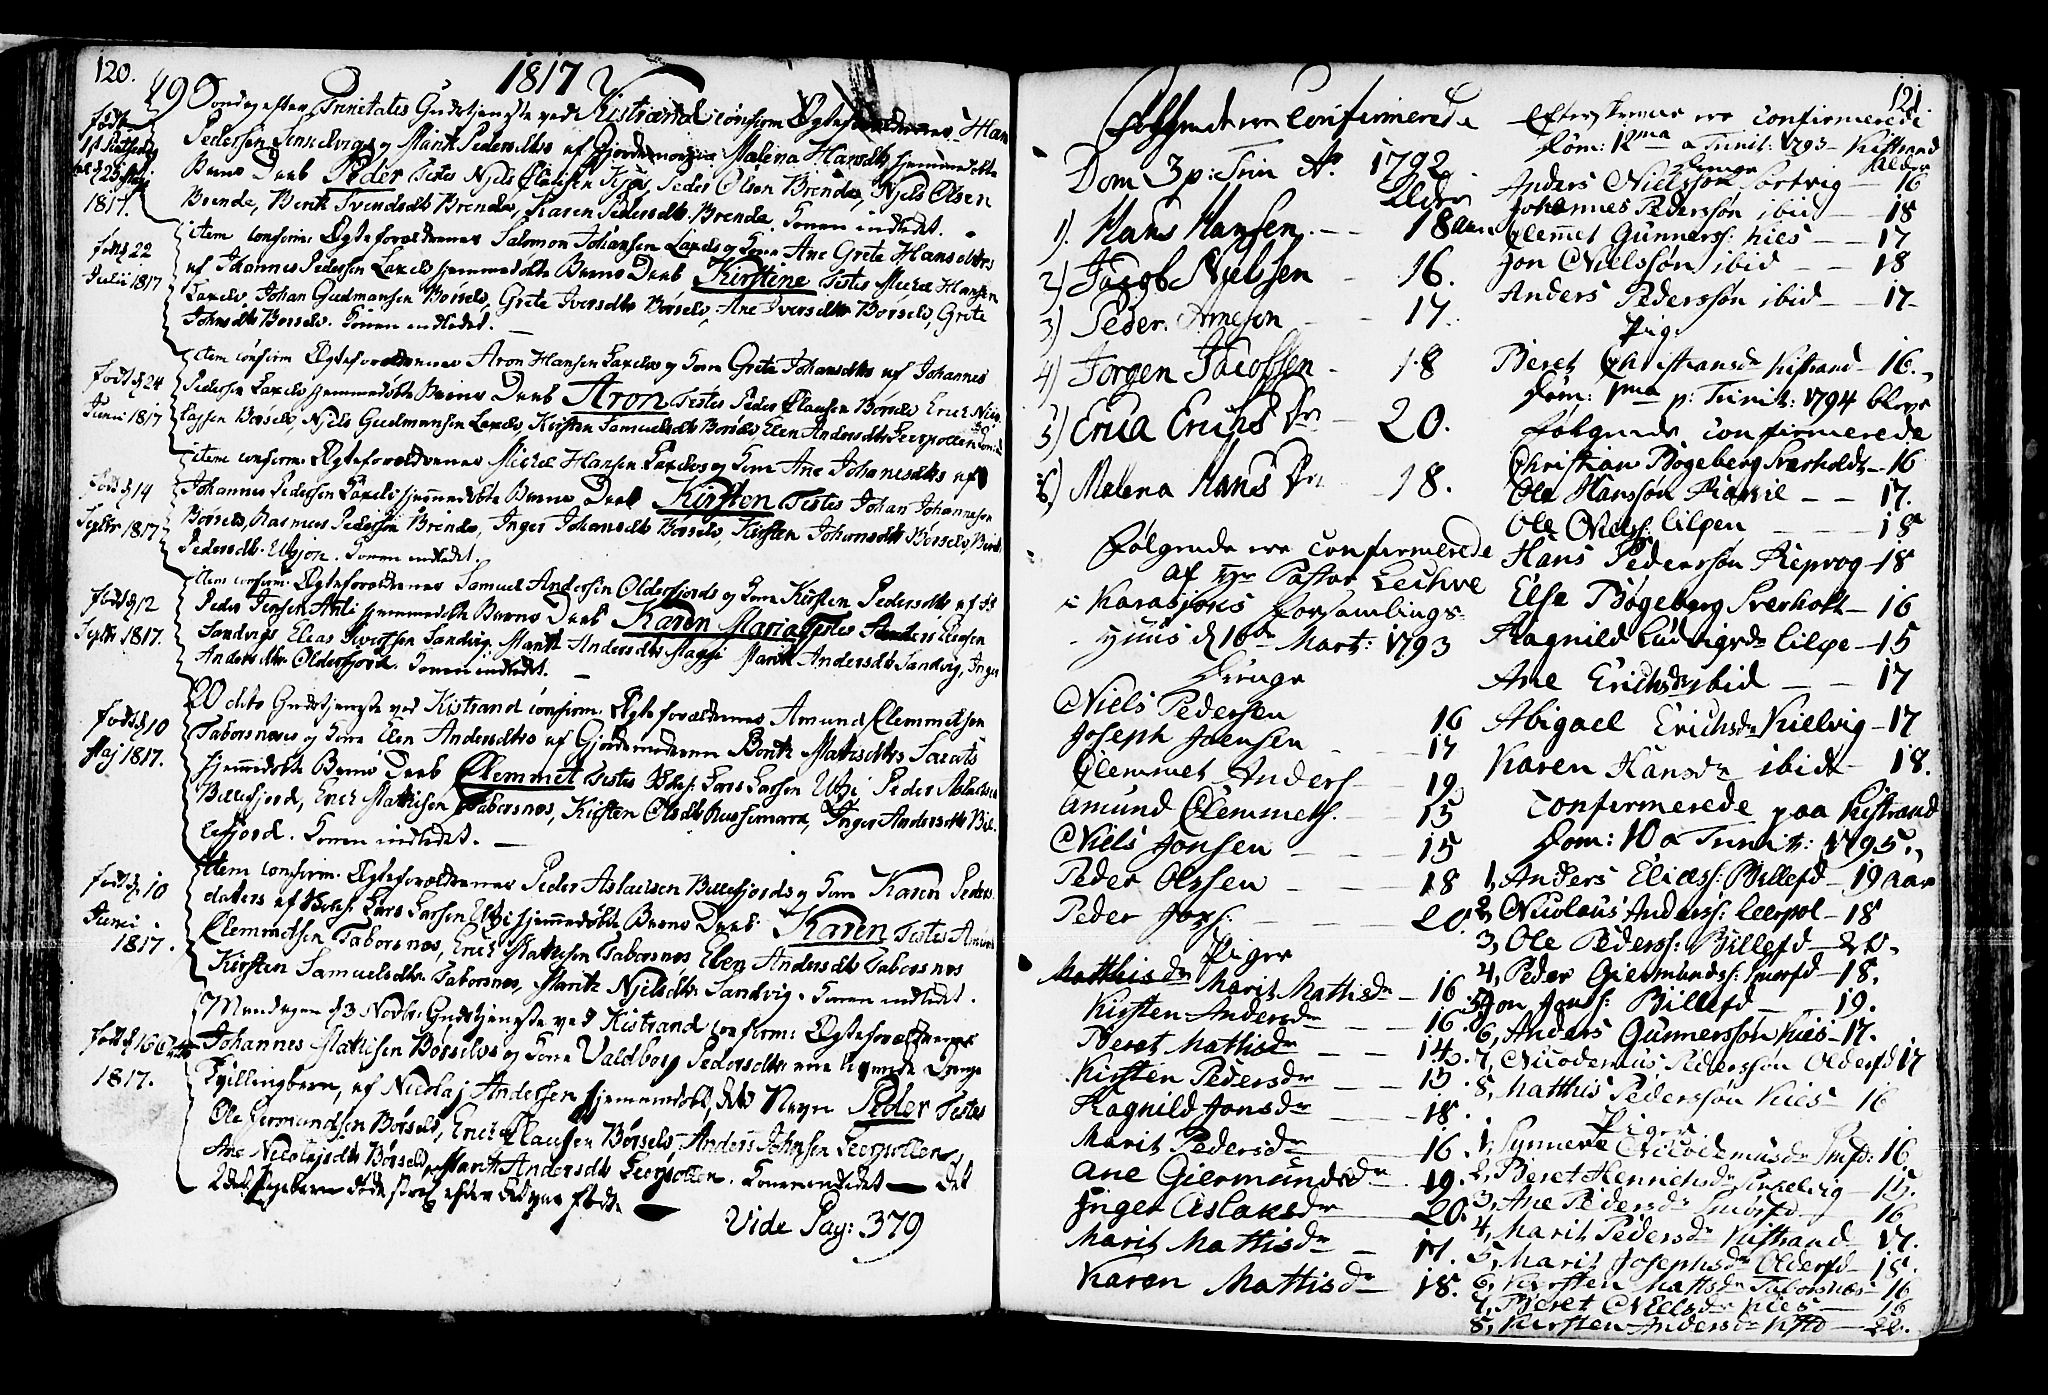 120.
1817
19 Søndag efter Trinitates Gudstjeneste ved Kistrand confirm: Ægteforældrenes Hans
Pedersen og Marit Pedersdtrs af Gjordemoren Malena Hansdtr hjemmedøbte
Barns Daab Peder Testes Njels Clausen Kjæs, Peder Olsen Brenda, Njels Olsen
Brenda, Berit Svendsdtr Brenda, Karen Pedersdtr Brenda. Konen indledet.
født
1817.
item confirm: Ægteforældrenes Salomon Johansen Laxelv og Kone Ane Grete Hansdtrs
af Johannes Pedersen Laxelv hjemmedøbte Barns Daab Kirstine Testes Mickel Hansen
Laxelv, Johan Gudmansen Børselv, Grete Iversdtr Børselv, Ane Iversdtr Børselv, Grete
Johnsdtr Børselv. Konen indledet.
født d 22
Julii 1817
item confirm Ægteforældrenes Aron Hansen Laxelvs og Kone Grete Johansdtrs af Johannes
Pedersen Laxelv hjemmedøbte Barns Daab Aron Testes Peder Clausen Børselv Erich Niels
Clausen Børselv, Njels Gudmansen Laxelv, Kirsten Samuelsdtr Børselv Elen Andersdtr Leerpollen Konen
født d 24
Junii 1817
item confirm: Ægteforældrenes Mickel Hansen Laxelvs og Kone Ane Johanesdtrs af
Johannes Pedersen Laxelv hjemmedøbte Barns Daab Kirsten Testes Johan Johannesen
Børselv, Rasmus Pedersen Brenda, Inger Johansdtr Børselv, Kirsten Johansdtr Børselv, Berit
Pedersdtr Utsjon. Konen indledet.
født d 14
Septbr 1817
Item confirm: Ægteforældrenes Samuel Andersen Olderfjords og Kone Kirsten Pedersdtrs af
Peder Jensen Anti hjemmedøbte Barns Daab Karen Maria Testes Anders Clausen
Sandvig, Elias Iversen Sandvig, Marit Andersdtr Marit Andersdtr Sandvig, Inger
Andersdtr Olderfjord. Konen indledet.
født d 12
Septbr 1817.
20 dito Gudstjeneste ved Kistrand confirm: Ægteforældrenes Amund Clemmetsen
Taborsnæs og Kone Elen Andersdtrs af Gjordemoderen Berith Mathisdtrs Sarats
hjemmedøbte Barns Daab Clemmet Testes Lars Larsen Utzi Peder Aslachsen
Billefjord, Erich Mathisen Taborsnæs, Kirsten Olsdtr Russemark, Inger Andersdtr Bil-
lefjord. Konen indledet.
født d 10
Maj 1817.
Item confirm: Ægteforældrenes Peder Aslacksen Billefjords og Kone Karen Peders
daters af Lars Larsen Utzi hjemmedøbte Barns Daab: Karen Testes Amund
Clemmetsen Taborsnæs, Erich Mathisen Taborsnæs, Elen Andersdtr Taborsnæs
Kirsten Samuelsdtr Taborsnæs, Marith Njelsdtr Sandvig. Konen indledet.
født d 10
Junii
1817.
Mandagen d 3 Novbr. Gudstjeneste ved Kistrand confirm: Ægteforældrenes
Johannes Mathisen Børselvs og Kone Valdborg Pedersdtrs ene levende Drenge
Tvillingbarn, af Nicolaj Andersen hjemmedøbt, dets Navn Peder Testes
Ole Germundsen Børselv, Erich Clausen Børselv, Anders Johnsen Leerpollen,
Ane Nicolajsdtr Børselv, Marit Andersdtr Leerpollen. Konen indledet — Det
2det Pigebarn døde strax efter det var født.
født d 16 Octbr
1817.
Vide Pag: 379
Følgende ere Confirmerede
Dom 3 p: Trin Ao. 1792
Alder
1). Hans Hansen. - - 18 aar
2) Jacob Njelssen - 16.
3) Peder Arnesen - - 17.
4) Jörgen Jacobsen - 18
5) Erica Erichs Dr - 20.
6) Malena Hans Dr - 18.
Følgende ere Confirmerede
af Hr Pastor Lechve
i Karasjoks Forsamlings-
Huus d 16de Mart: 1793
Drenge
Niels Pedersen 16
Joseph Joensen - - 17
Clemmet Anders - 19
Amund Clemmets. - - 15
Niels Jonsen - - - 15
Peder Olssen - - - 18
Peder Jons: - - - 20.
Piger
Matthisdr Marit Mattisdr - 16
Kirsten Andersdr - - 16.
Beret Mattisdr - - 14
Kirsten Pedersdr - - 15.
Ragnild Jonsdr - - 18.
Marit Pedersdr - - 16.
Ane Giermundsdr - 19.
Inger Aslaksdr - 20.
Marit Mattisdr - 17.
Karen Mattisdr - 18.
121.
Efterskrevne ere confirmerede
Dom: 12ma a Trinit: 1793 Kistrand
Drenge Alder
Anders Nielssøn Sortvig - 16
Johannes Pederssøn ibid - 18
Clemmet Gunners: Kies - - 17
Jon Nielssøn ibid - - 18
Anders Pederssøn ibid - - 17
Pige
Beret Christiansdr Kistrand - 16.
Dom: 1ma p: Trinit: 1794 bleve
følgende confirmerede
Christian Bøgeberg Sverholt - 16
Ole Hanssøn - - 17.
Ole Niels: Cilpen - - 18
Hans Pederssøn Repvog - 18
Else Bøgeberg Sverholt - 16
Ragnild Ludvigsdr Cilpe - 15
Ane Erichsdr ibid - - 17
Abigael Erichsdr Kielvig - 17
Karen Hansdr ibid - 18.
Confirmerede paa Kistrand
Dom: 10 a Trinit: 1795.
1, Anders Eliæs: Billefd - 19 aar
2, Nicolaus Anders: Leerpol - 18
3, Ole Peders: Billefd - 20
4, Peder Giermunds: Smørfd - 18.
5, Jon Jons: Billefd - - 19.
6, Anders Gunnerssøn Kies - 17.
7, Nicodemus Pederssøn Olderfd 17
8, Matthis Pederssøn Kies - 16
Piger
1, Synnerve Nicodemusdr Smfd: 16
2, Beret Henrichsdr - 15.
3, Ane Pedersdr Smørfd - 16
4, Marit Pedersdr Kistrand - 17.
5, Marit Josephsdr Olderfd - 18.
6, Kirsten Mattsdr Taborsnæs - 16
7, Beret Nielsdr Kies - 16
8, Kirsten Andersdr Kistd - 20.